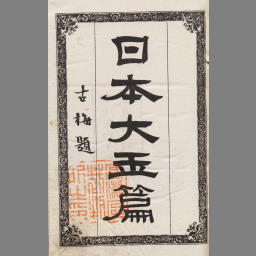 日本大玉篇
古梅題